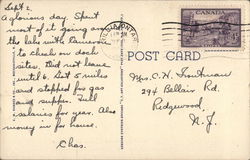 Sept 2,
A glorious day. Spent
most of it going over
the lake with
to check on dock
sites. Did not leave
until 6. Last 5 miles
and stopped for gas
and supper. Full
salaries for year. Also
money in for house.
Chas.
CANADA
POST CARD
Mrs. C. H. Troutman
294 Bellair Rd.
Ridgewood,
N. J.